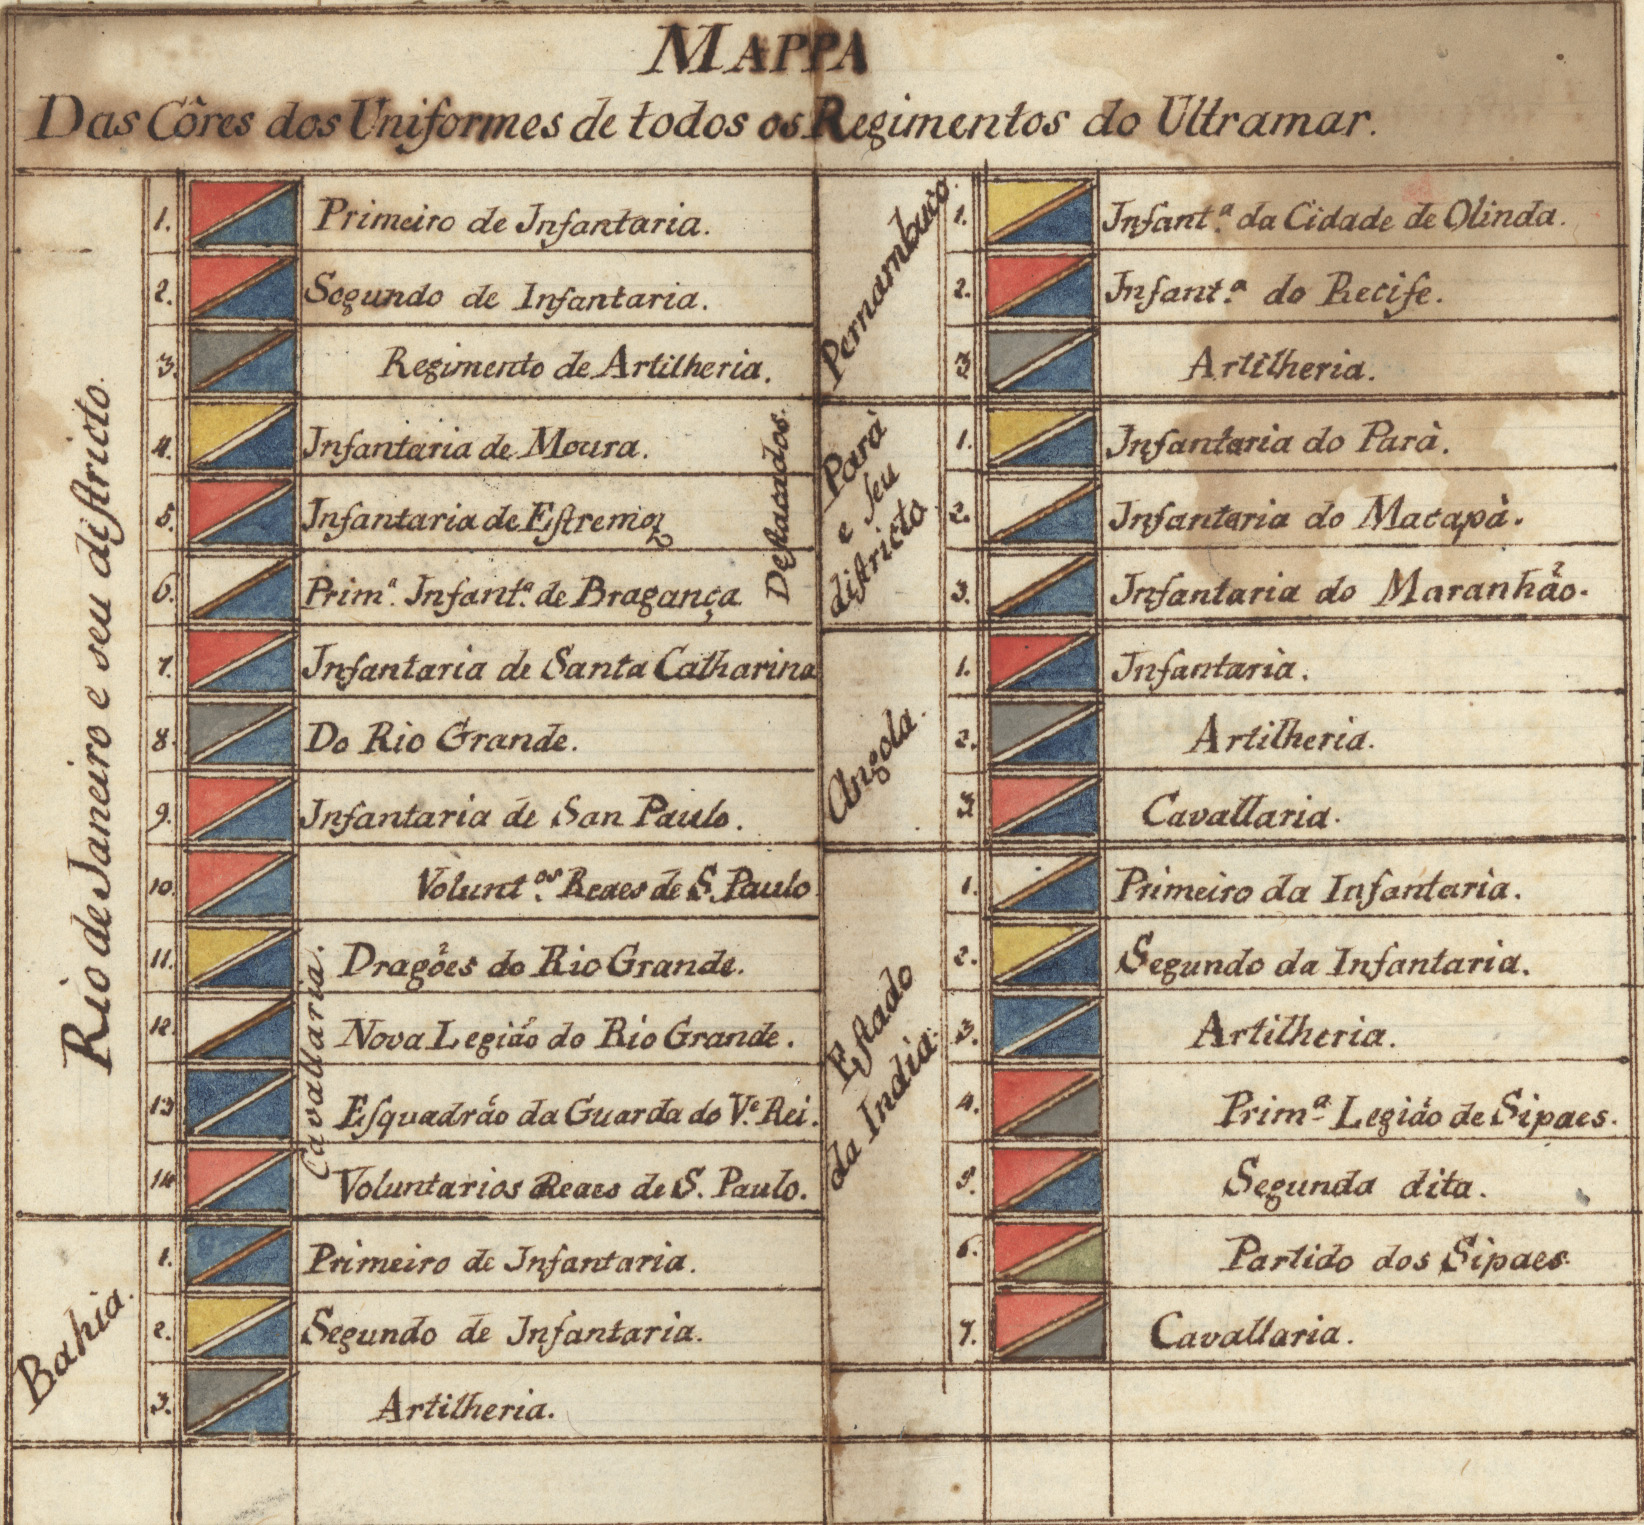 MAPPA
Das Côres dos Uniformes de todos os Regimentos do Ultramar.
Rio de Janeiro e seu diſtricto.
1. Primeiro de Infantaria.
2. Segundo de Infantaria.
3. Regimento de Artilheria.
4. Infantaria de Moura.
5. Infantaria de Eſtremoz
6. Prim.ª Infant.ª de Bragança
Deſtacados.
7. Infantaria de Santa Catharina
8. Do Rio Grande.
9. Infantaria de San Paulo.
10. Volunt.os Reaes de S. Paulo
Cavallaria.
11. Dragões do Rio Grande.
12. Nova Legião do Rio Grande.
13 Eſquadrão da Guarda do V.e Rei.
14 Voluntarios Reaes de S. Paulo.
Bahia.
1. Primeiro de Infantaria.
2. Segundo de Infantaria.
3. Artilheria.
Pernambuco.
1. Infant.ª da Cidade de Olinda.
2. Infant.ª do Recife.
3 Artilheria.
Parà
e ſeu
diſtricto
1. Infantaria do Parà.
2. Infantaria do Macapà.
3. Infantaria do Maranhão.
Angola.
1. Infantaria.
2. Artilheria.
3 Cavallaria.
Eſtado
da India.
1. Primeiro da Infantaria.
2. Segundo da Infantaria.
3. Artilheria.
4. Prim.ª Legião de Sipaes.
5. Segunda dita.
6. Partido dos Sipaes.
7. Cavallaria.